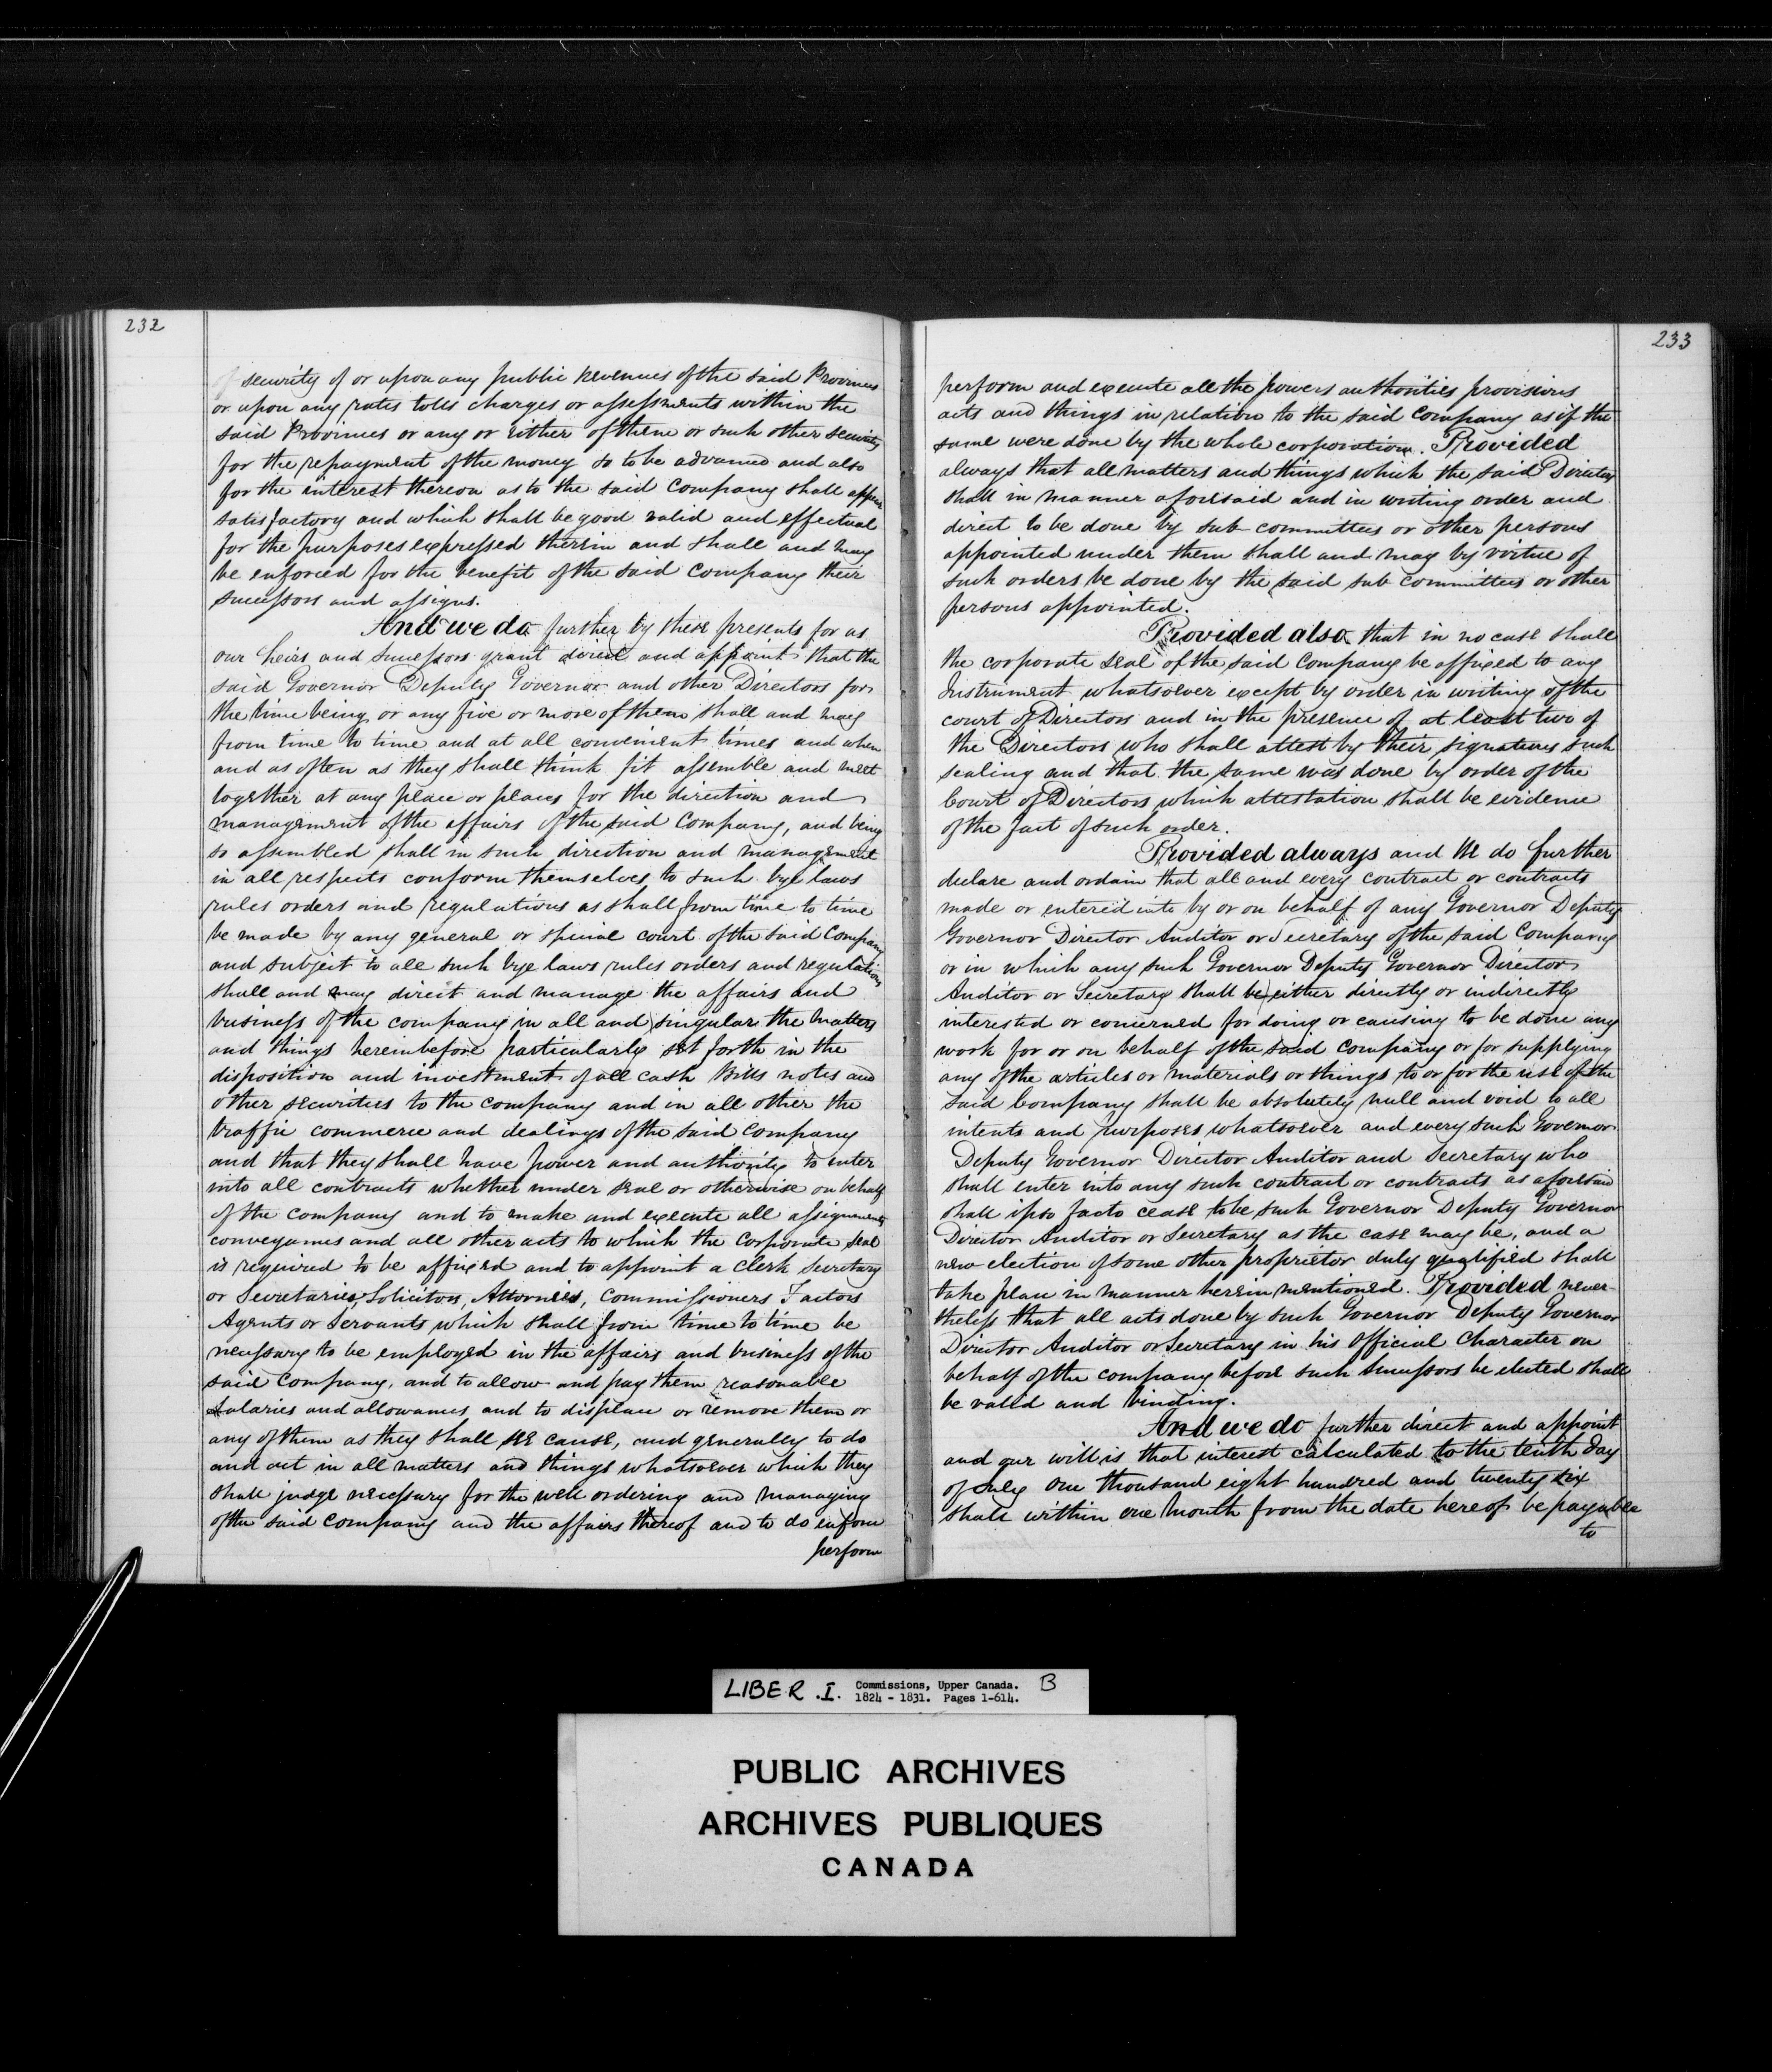 232
security of or upon any public revenues of the said Provinces
or upon any rates tolls charges or assessments within the
said Provinces or any or either of them or such other security
for the repayment of the money so to be advanced and also
for the interest thereon as to the said Company shall appear
satisfactory and which shall be good valid and effectual
for the purposes expressed therein and shall and may
be enforced for the benefit of the said Company their
successors and assigns.
And we do further by these presents for us
our heirs and successors grant direct and appoint that the
said Governor Deputy Governor and other Directors for
the time being or any five or more of them shall and may
from time to time and at all convenient times and when
and as often as they shall think fit assemble and meet
together at any place or places for the direction and
management of the affairs of the said Company, and being
so assembled shall in such direction and management
in all respects conform themselves to such bye laws
rules orders and regulations as shall from time to time
be made by any general or special court of the said Company
and subject to all such bye laws rules orders and regulations
shall and may direct and manage the affairs and
business of the company in all and singular the matters
and things hereinbefore particularly set forth in the
disposition and investment of all cash Bills notes and
other securities to the company and in all other the
traffic commerce and dealings of the said Company
and that they shall have power and authority to enter
into all contracts whether under seal or otherwise on behalf
of the company and to make and execute all assignments
conveyances and all other acts to which the Corporate seal
is required to be affixed and to appoint a Clerk Secretary
or Secretaries, Solicitors, Attornies, Commissioners Factors
Agents or Servants which shall from time to time be
necessary to be employed in the affairs and business of the
said Company, and to allow and pay them reasonable
salaries and allowances and to displace or remove them or
any of them as they shall see cause, and generally to do
and act in all matters and things whatsoever which they
shall judge necessary for the well ordering and managing
of the said Company and the affairs thereof and to do enforce
perform
233
perform and execute all the powers authorities provisions
acts and things in relation to the said Company as if the
same were done by the whole corporation. Provided
always that all matters and things which the said Directors
shall in manner aforesaid and in writing order and
direct to be done by sub committees or other persons
appointed under them shall and may by virtue of
such orders be done by the said sub committees or other
persons appointed.
Provided also that in no case shall
the corporate seal of the said Company be affixed to any
Instrument whatsoever except by order in writing of the
court of Directors and in the presence of at least two of
the Directors who shall attest by their signatures such
sealing and that the same was done by order of the
Court of Directors which attestation shall be evidence
of the fact of such order.
Provided always and We do further
declare and ordain that all and every contract or contracts
made or entered into by or on behalf of any Governor Deputy
Governor Director Auditor or Secretary of the said Company
or in which any such Governor Deputy Governor Director
Auditor or Secretary shall be either directly or indirectly
interested or concerned for doing or causing to be done any
work for or on behalf of the said Company or for supplying
any of the articles or materials or things to or for the use of the
said Company shall be absolutely null and void to all
intents and purposes whatsoever and every such Governor
Deputy Governor Director Auditor and Secretary who
shall enter into any such contract or contracts as aforesaid
shall ipso facto cease to be such Governor Deputy Governor
Director Auditor or Secretary as the case may be, and a
new election of some other proprietor duly qualified shall
take place in manner herein mentioned. Provided never-
theless that all acts done by such Governor Deputy Governor
Director Auditor or Secretary in his Official Character on
behalf of the company before such successors be elected shall
be valid and binding.
And we do further direct and appoint
and our will is that interest calculated to the tenth day
of July One thousand eight hundred and twenty six
shall within one Month from the date hereof be payable
to
LIBER .I. Commissions, Upper Canada. B
1824 - 1831. Pages 1-614.
PUBLIC ARCHIVES
ARCHIVES PUBLIQUES
CANADA